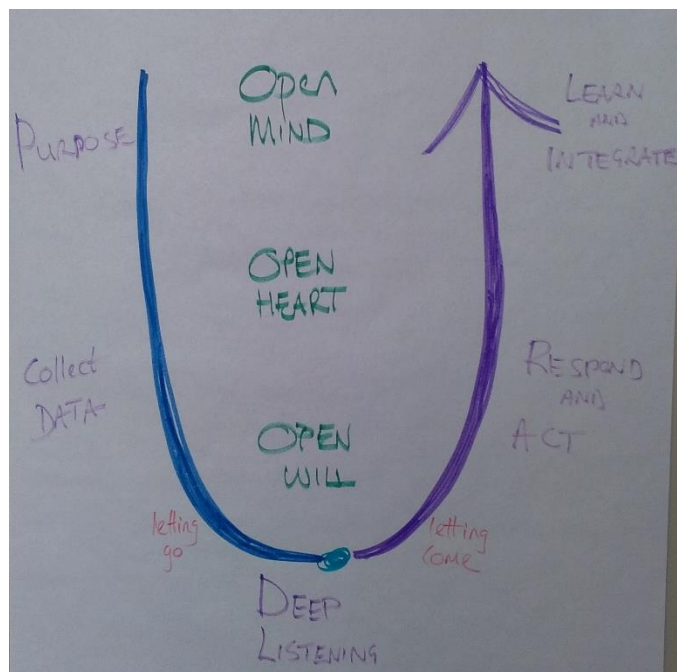 Open
MIND
PURPOSE
LEARN
AND
INTEGRATE
OPEN
HEART
Collect
DATA
RESPOND
AND
ACT
OPEN
WILL
letting
go
letting
come
DEEP
LISTENING